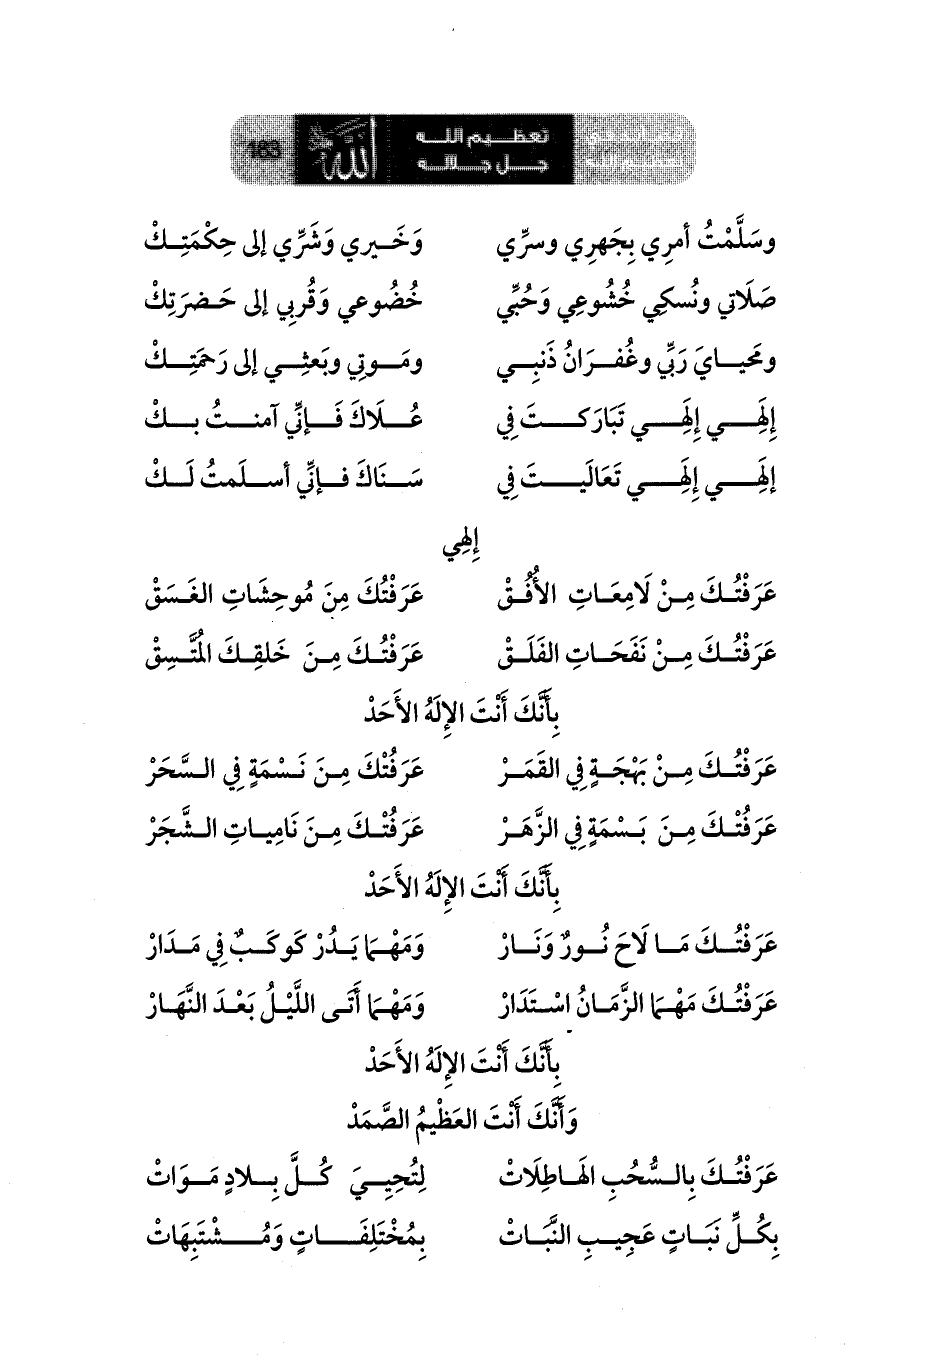 تعظيم الله
جل جلاله
183
وسَلَّمْتُ أمرِي بِجَهرِي وسرِّي وَخَيرِي وَشَرِّي إلى حِكْمَتِكْ
صَلَاتي ونُسكِي خُشُوعِي وَحُبِّي خُضُوعي وَقُربِي إلى حَضرَتِكْ
ومَحيايَ رَبِّي وغُفرَانُ ذَنبِي ومَوتِي وبَعثِي إلى رَحمَتِكْ
إِلَهِي إِلَهِي تَبَارَكتَ فِي عُلَاكَ فَإِنِّي آمنتُ بِكْ
إِلَهِي إِلَهِي تَعَالَيتَ فِي سَنَاكَ فإنِّي أسلَمتُ لَكْ
إِلهِي
عَرَفْتُكَ مِنْ لَامِعَاتِ الأُفُقْ عَرَفْتُكَ مِنَ مُوحِشَاتِ الغَسَقْ
عَرَفْتُكَ مِنْ نَفَحَاتِ الفَلَقْ عَرَفْتُكَ مِنَ خَلقِكَ المُتَّسِقْ
بِأَنَّكَ أَنْتَ الإِلَهُ الأَحَدْ
عَرَفْتُكَ مِنْ بَهْجَةٍ فِي القَمَرْ عَرَفْتُكَ مِنَ نَسْمَةٍ فِي السَّحَرْ
عَرَفْتُكَ مِنَ بَسْمَةٍ فِي الزَّهَرْ عَرَفْتُكَ مِنَ نَامِياتِ الشَّجَرْ
بِأَنَّكَ أَنْتَ الإِلَهُ الأَحَدْ
عَرَفْتُكَ مَا لَاحَ نُورٌ وَنَارْ وَمَهْمَا يَدُرْ كَوكَبٌ فِي مَدَارْ
عَرَفْتُكَ مَهْمَا الزَّمَانُ اسْتَدَارْ وَمَهْمَا أَتَى اللَّيْلُ بَعْدَ النَّهَارْ
بِأَنَّكَ أَنْتَ الإِلَهُ الأَحَدْ
وَأَنَّكَ أَنْتَ العَظْيمُ الصَّمَدْ
عَرَفْتُكَ بِالسُّحُبِ الهَاطِلَاتْ لِتُحِييَ كُلَّ بِلادٍ مَوَاتْ
بِكُلِّ نَبَاتٍ عَجِيبِ النَّبَاتْ بِمُخْتَلِفَاتٍ وَمُشْتَبِهَاتْ